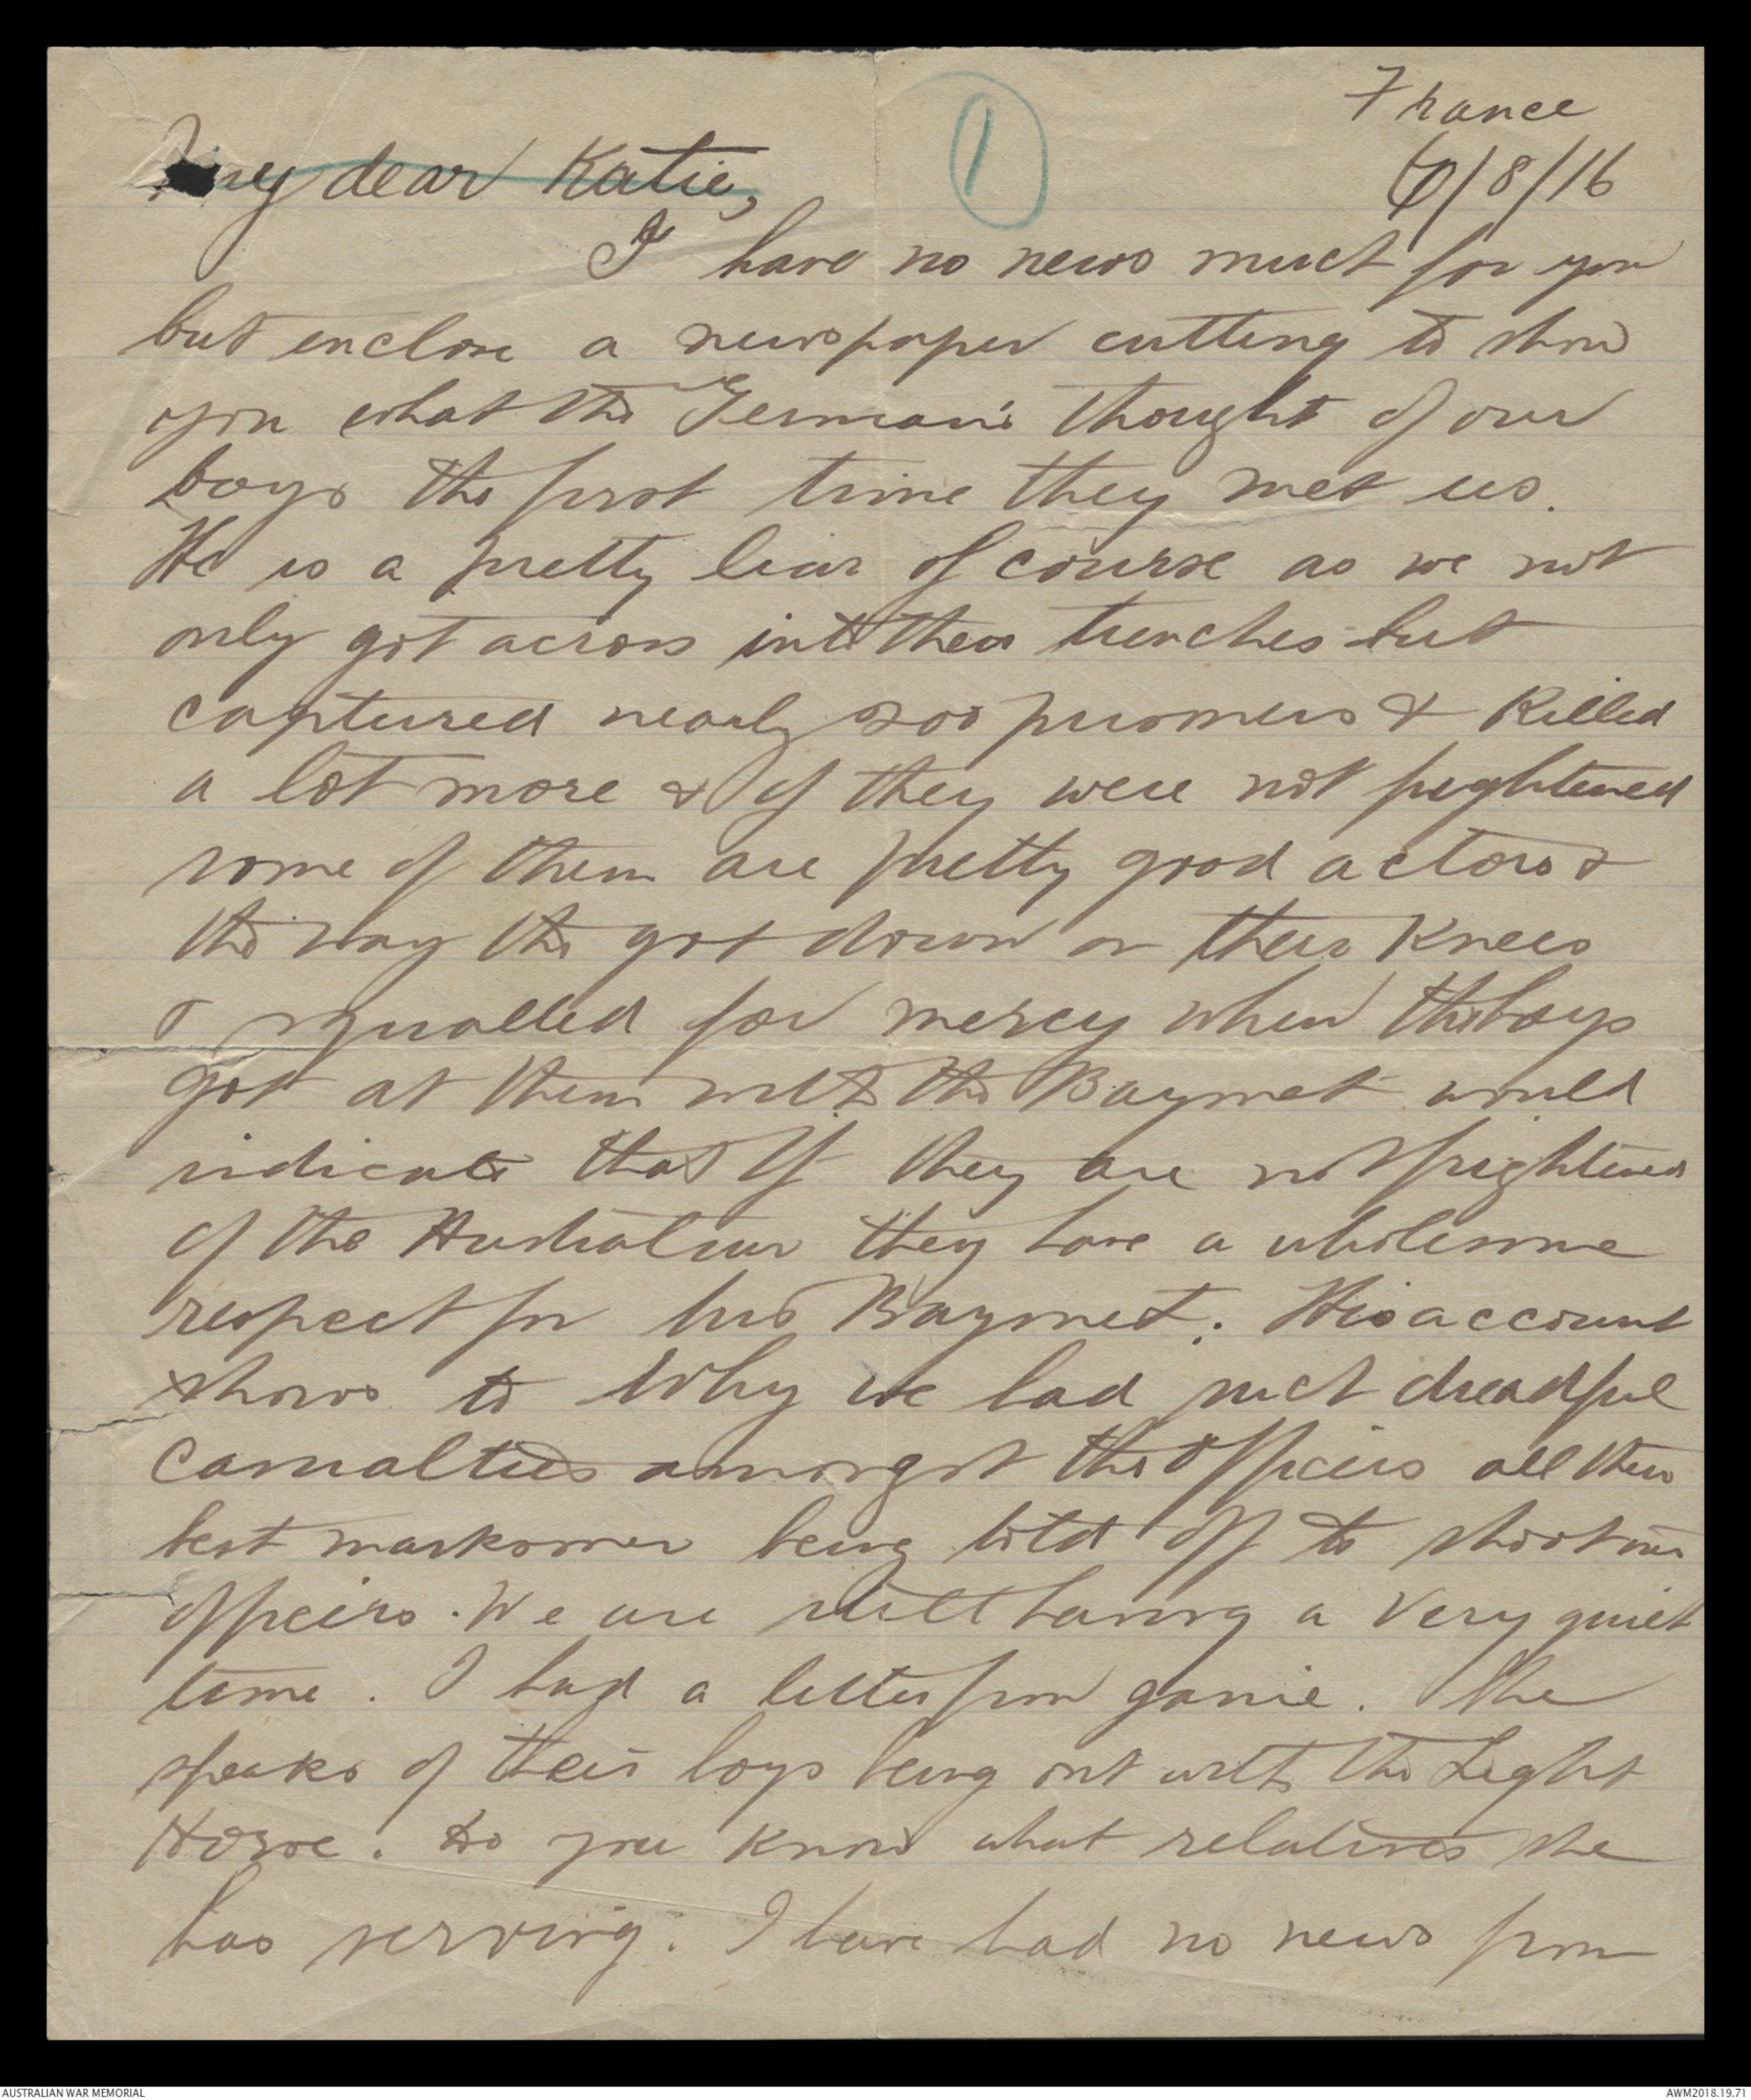 France
/8/16
1
My dear Katie,
I have no news much for you
but enclose a newspaper cutting to show
you what the German's thought of our
boys the first time they met us.
He is a pretty liar of course as we not
only got across into their trenches but
captured nearly 200 prisoners & killed
a lot more & if they were not frightened
some of them are pretty good actors &
the way the got down on their knees
& squalled for mercy when the boys
got at them with the Bayonet would
indicate that if they are not frightened
of the Australian they have a wholesome
respect for his Bayonet. His account
shows to why we had such dreadful
casualties amongst the officers all their
best marksmen being told off to shoot our
officers. We are still having a very quiet
time. I had a letter from ganie. She
speaks of their boys being out with the Light
Horse. Do you know what relatives she
has serving. I have had no news from
AUSTRALIAN WAR MEMORIAL
AWM2018.19.71